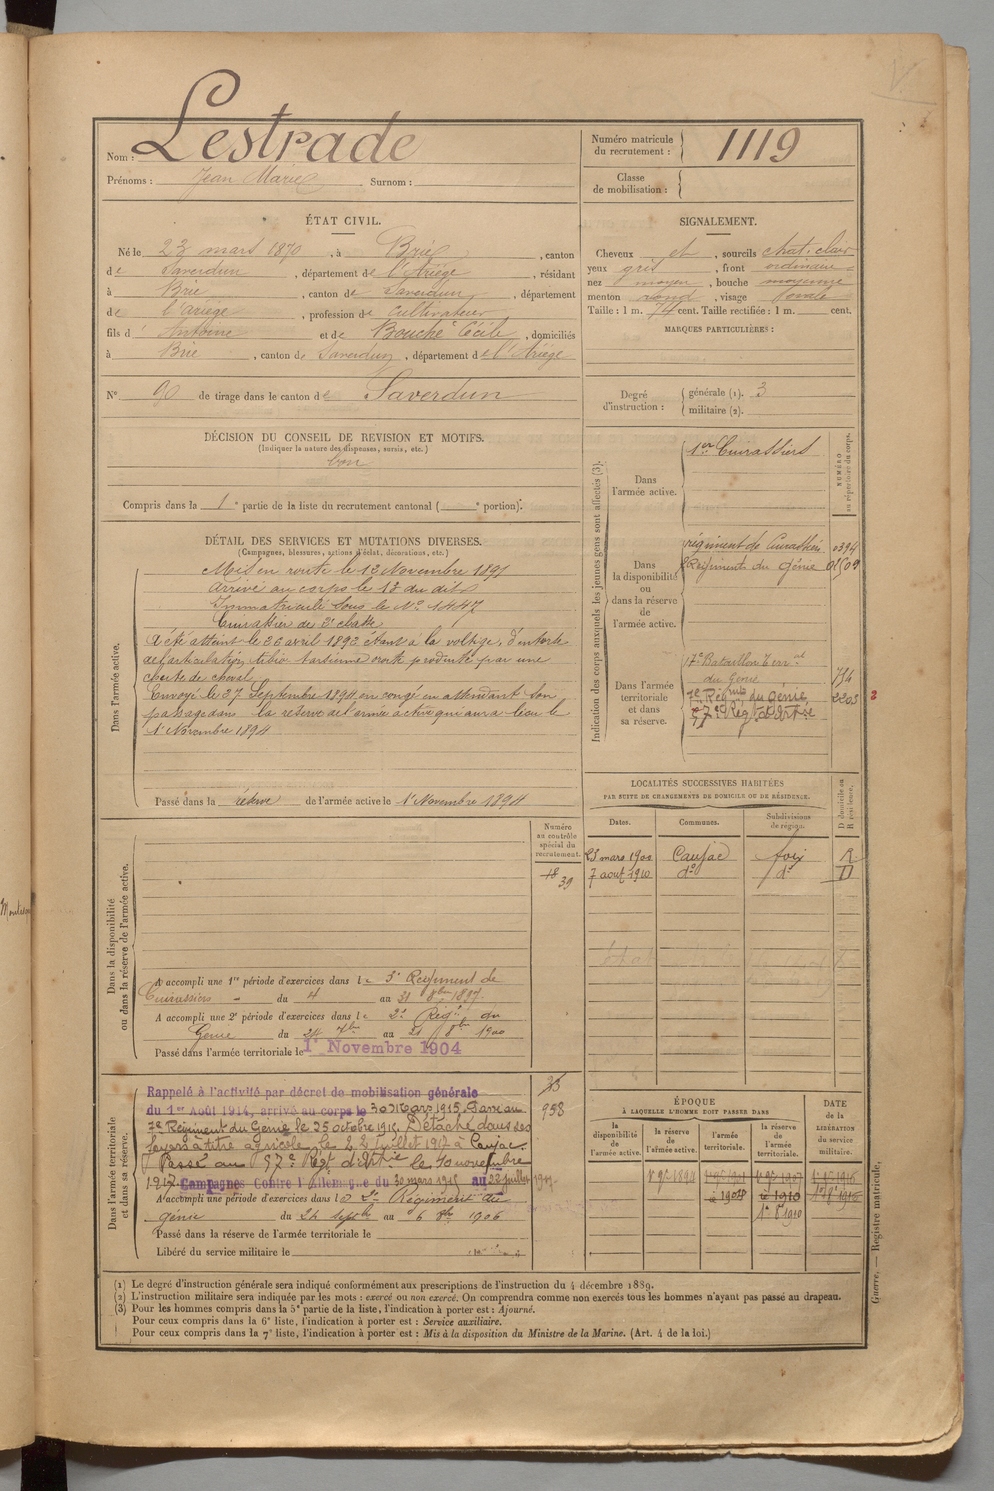 Nom : Lestrade
Prénoms : Jean Marie Surnom :
Numéro matricule du recrutement : 1119
Classe de mobilisation :
ÉTAT CIVIL.
Né le 23 mars 1870, à Brie, canton
de Saverdun, département de l'Ariège, résidant
à Brie, canton de Saverdun, département
de l'Ariège, profession de Cultivateur
fils d' Antoine et de Bouche Cécile, domiciliés
à Brie, canton de Saverdun, département de l'Ariège
N° 90 de tirage dans le canton de Saverdun
SIGNALEMENT.
Cheveux et, sourcils chat. clair
yeux gris, front ordinaire
nez moyen, bouche moyenne
menton rond, visage ovale
Taille : 1 m. 74 cent. Taille rectifiée : 1 m. cent.
MARQUES PARTICULIÈRES :
Degré d'instruction : générale (1). 3
militaire (2).
DÉCISION DU CONSEIL DE REVISION ET MOTIFS.
(Indiquer la nature des dispenses, sursis, etc.)
bon
Compris dans la 1e partie de la liste du recrutement cantonal ( e portion).
DÉTAIL DES SERVICES ET MUTATIONS DIVERSES.
(Campagnes, blessures, actions d'éclat, décorations, etc.)
Dans l'armée active.
Mis en route le 12 Novembre 1891
Arrivé au corps le 13 du dit
Immatriculé sous le N° 1447
Cuirassier de 2e classe
A été atteint le 26 avril 1892 étant à la voltige, d'entorse
de l'articulation tibio tarsienne droite produite par une
chute de cheval
Envoyé le 27 Septembre 1894 en congé en attendant son
passage dans la réserve de l'armée active qui aura lieu le
1er Novembre 1894
Passé dans la réserve de l'armée active le 1er Novembre 1894
Indication des corps auxquels les jeunes gens sont affectés (3).
NUMÉRO au répertoire du corps.
Dans l'armée active.
1er Cuirassiers
Dans la disponibilité ou dans la réserve de l'armée active.
régiment de Cuirassiers 0394
2e Régiments du Génie
Dans l'armée territoriale et dans sa réserve.
17e Bataillon Territal
du Génie 754
7e Régt du génie 2203
57e Régt d'Artie
LOCALITÉS SUCCESSIVES HABITÉES
PAR SUITE DE CHANGEMENTS DE DOMICILE OU DE RÉSIDENCE.
Dates. Communes. Subdivisions de région. D domicile ou R résidence.
23 mars 1900 Caujac foix R
7 aout 1910 do do D
Dans la disponibilité ou dans la réserve de l'armée active.
Numéro au contrôle spécial du recrutement.
39
A accompli une 1re période d'exercices dans le 3e Régiment de
Cuirassiers du 4 au 31 8bre 1897
A accompli une 2e période d'exercices dans le 2e Régt du
Génie du 24 7bre au 21 8bre 1900
Passé dans l'armée territoriale le 1er Novembre 1904
Dans l'armée territoriale et dans sa réserve.
958
Rappelé à l'activité par décret de mobilisation générale
du 1er Août 1914, arrivé au corps le 30 Mars 1915. Passé au
7e Régiment du Génie le 25 octobre 1915. Détaché dans ses
foyers à titre agricole le 22 Juillet 1917 à Caujac.
Passé au 57e Régt d'Artie le 10 novembre
1917. Campagnes Contre l'Allemagne du 30 mars 1915 au 22 juillet 1917
A accompli une période d'exercices dans le 2e Régiment du
génie du 24 septbre au 6 8bre 1906
Passé dans la réserve de l'armée territoriale le
Libéré du service militaire le
ÉPOQUE
À LAQUELLE L'HOMME DOIT PASSER DANS
la disponibilité de l'armée active. la réserve de l'armée active. l'armée territoriale. la réserve de l'armée territoriale.
DATE de la LIBÉRATION du service militaire.
1er 9bre 1894
1904
1910
1er 8 1910
(1) Le degré d'instruction générale sera indiqué conformément aux prescriptions de l'instruction du 4 décembre 1889.
(2) L'instruction militaire sera indiquée par les mots : exercé ou non exercé. On comprendra comme non exercés tous les hommes n'ayant pas passé au drapeau.
(3) Pour les hommes compris dans la 5e partie de la liste, l'indication à porter est : Ajourné.
Pour ceux compris dans la 6e liste, l'indication à porter est : Service auxiliaire.
Pour ceux compris dans la 7e liste, l'indication à porter est : Mis à la disposition du Ministre de la Marine. (Art. 4 de la loi.)
Guerre. — Registre matricule.